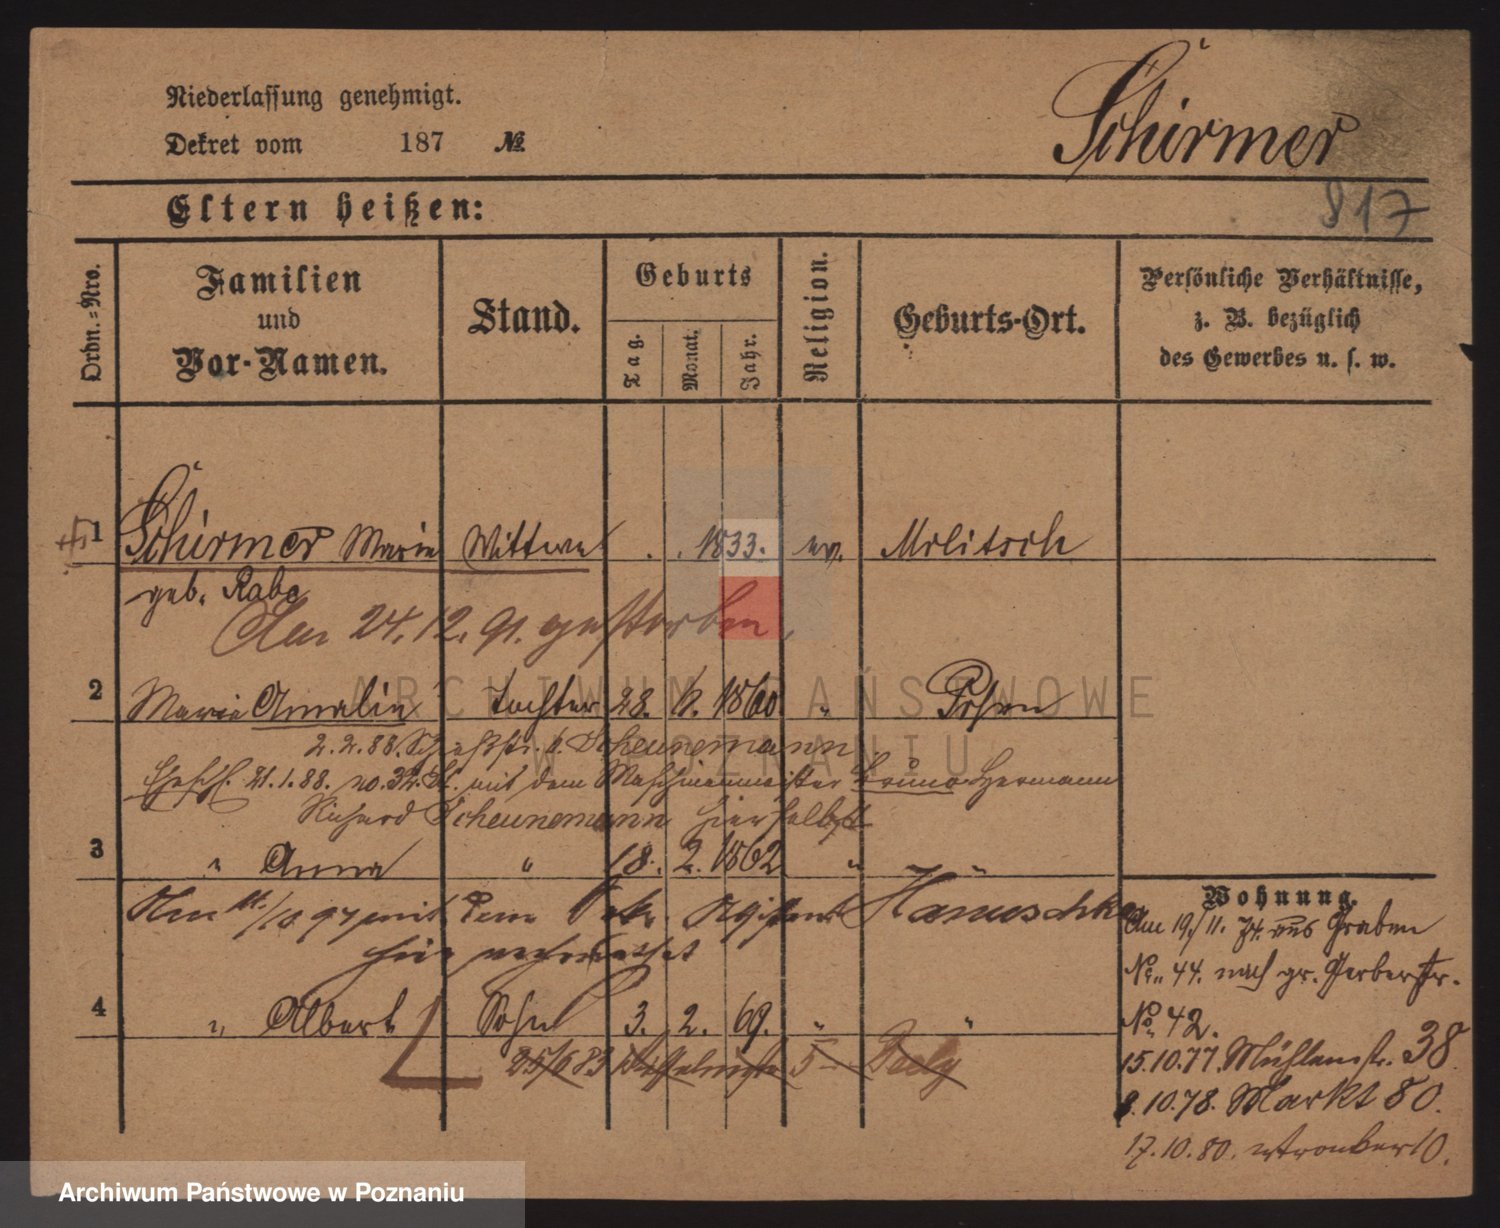 Niederlassung genehmigt.
Dekret vom 187 №
Schirmer
Eltern heißen:
817
Ordn.-Nro.
Familien
und
Vor-Namen.
Stand.
Geburts
Tag.
Monat.
Jahr.
Religion.
Geburts-Ort.
Persönliche Verhältnisse,
z. B. bezüglich
des Gewerbes u. s. w.
1 Schirmer Marie Wittwe . . 1833. ev. Militsch
geb. Rabe
Am 24.12.91. gestorben,
2 Marie Amalie Tochter 28. 6. 1860 " Posen
2.2.88. Scheunemann
21.1.88. no. mit dem Maschinenmeister Bruno Hermann
Richard Scheunemann hierselbst
3 " Anna " 18. 2. 1862 " "
mit dem Hanuschke
hier verheirathet
Wohnung.
Am 19/11. 74. aus Graben
No. 44. nach gr. Gerberstr.
4 " Albert Sohn 3. 2. 69. " "
No 42.
25/6 83
15.10.77. Mühlenstr. 38
8.10.78. Markt 80.
17.10.80. Wronker 10.
ARCHIWUM PAŃSTWOWE
W POZNANIU
Archiwum Państwowe w Poznaniu